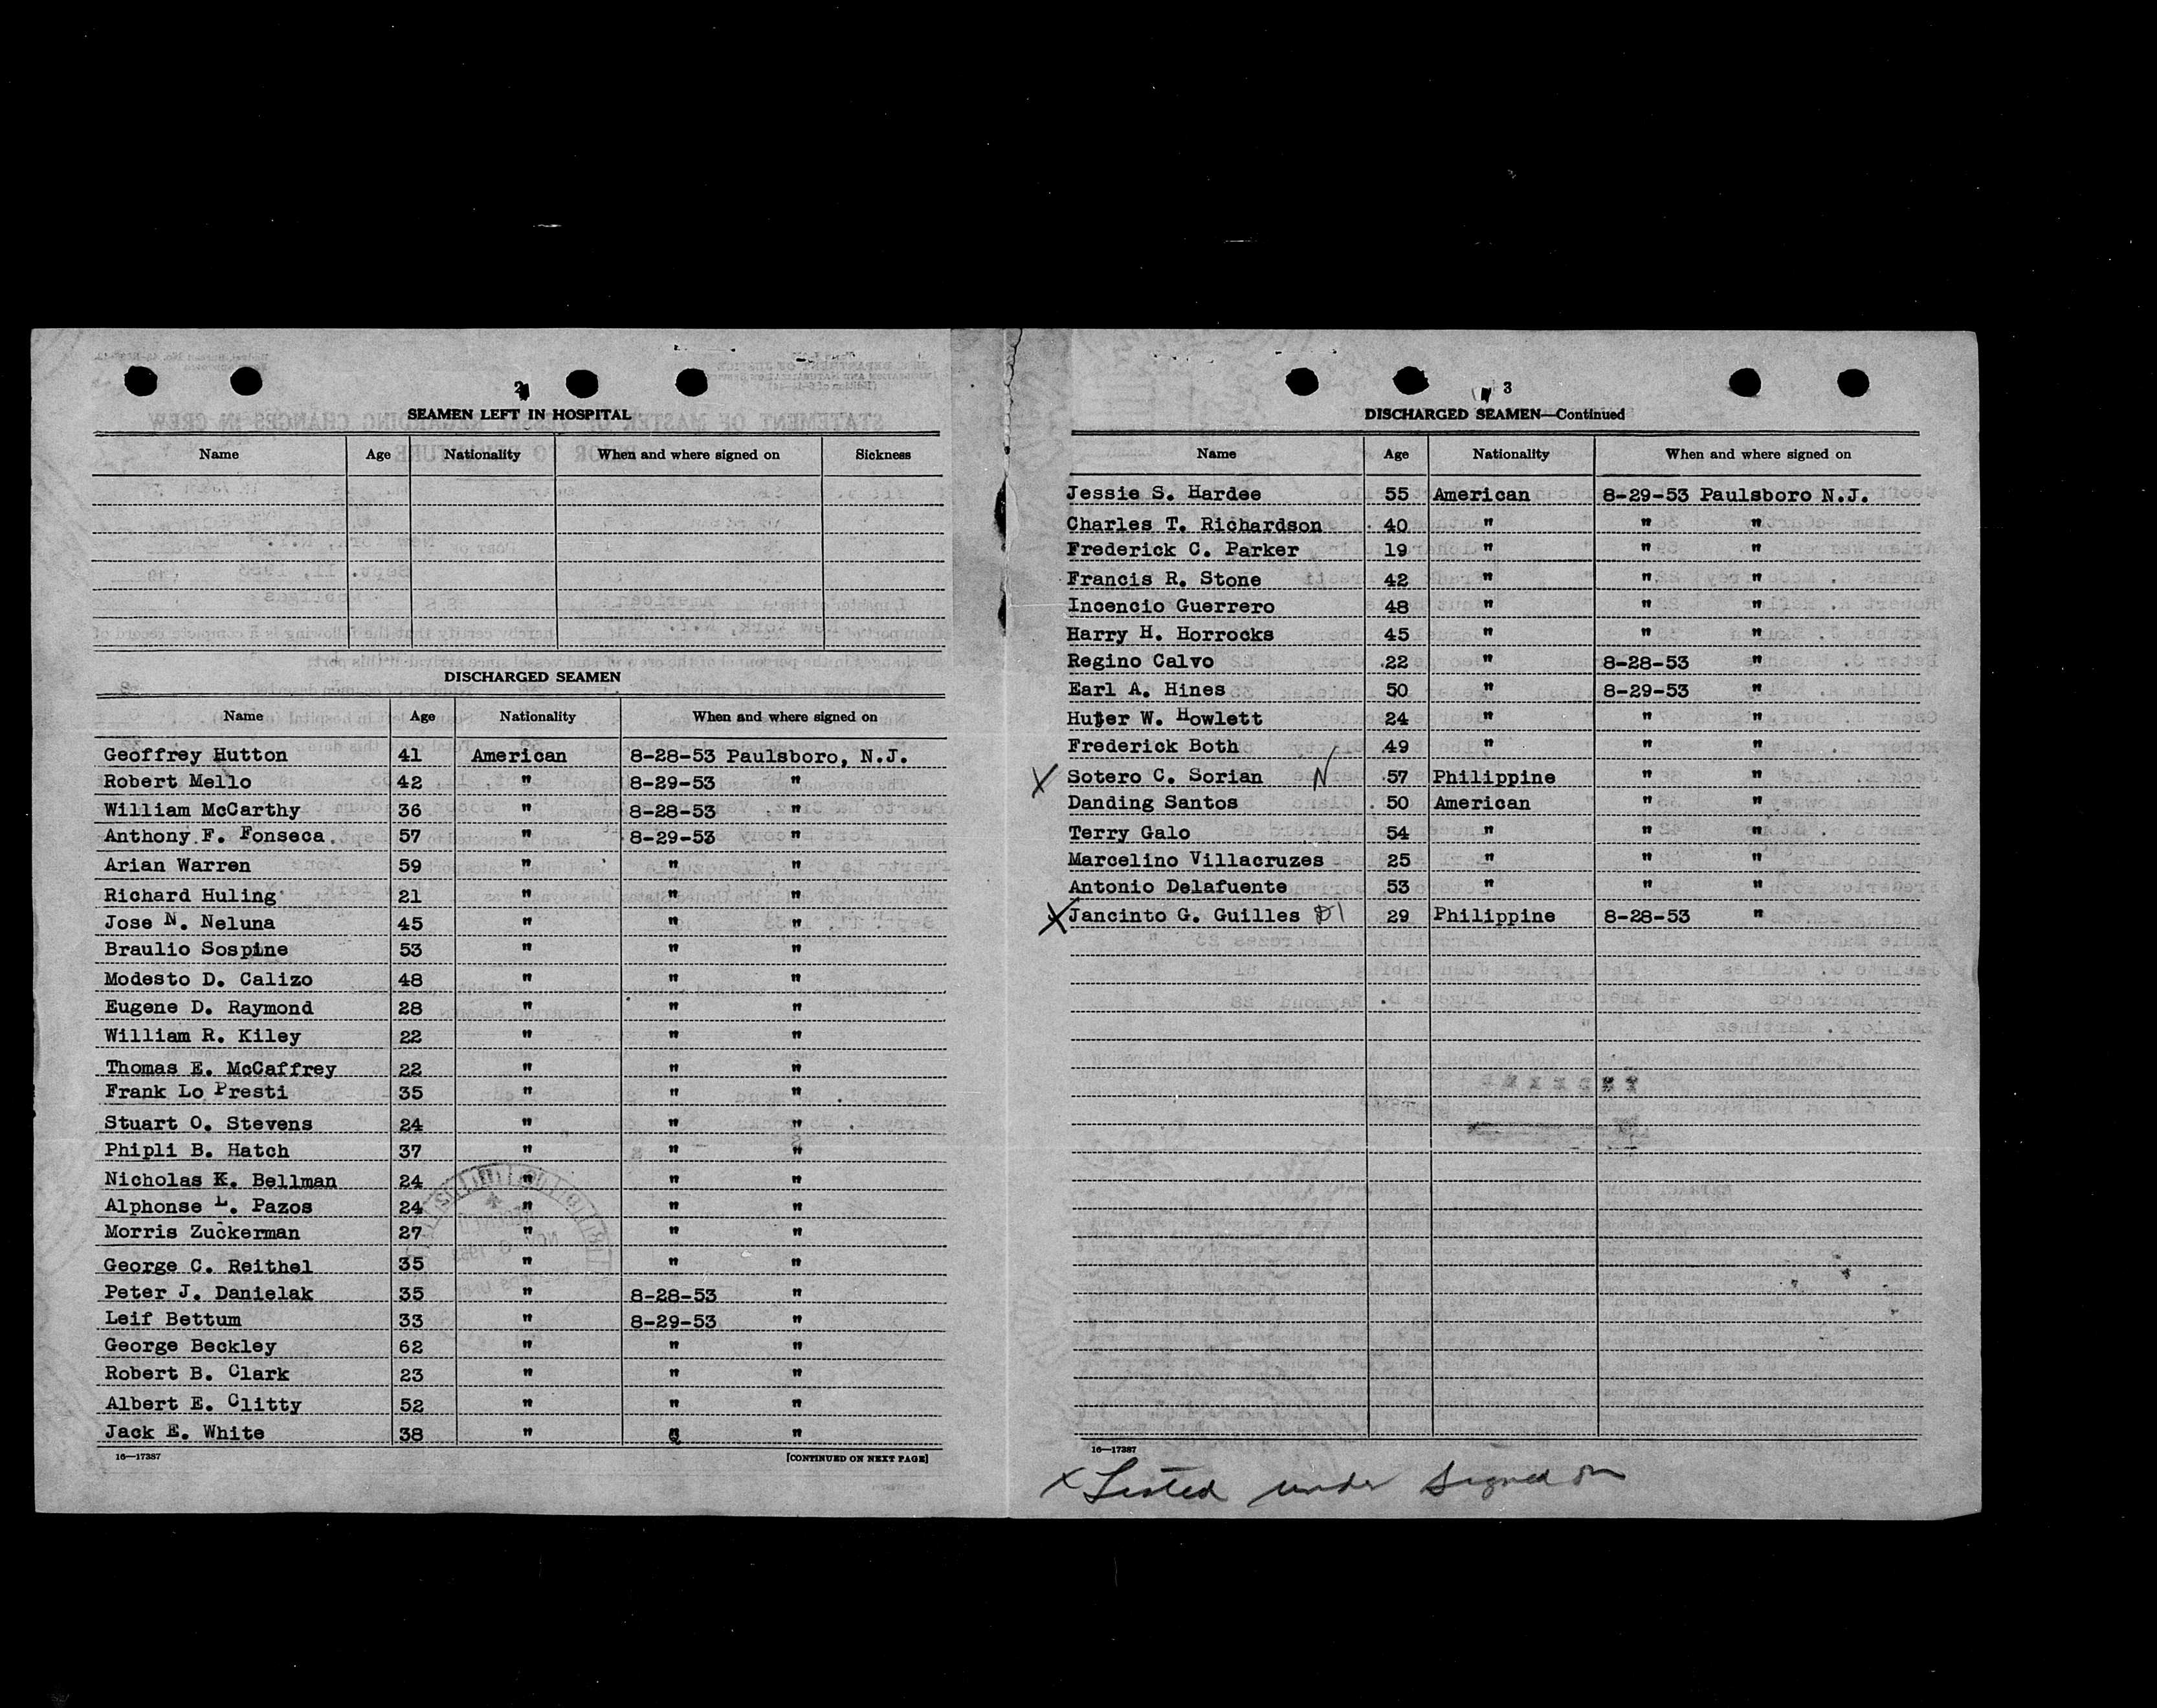 2
SEAMEN LEFT IN HOSPITAL
Name Age Nationality When and where signed on Sickness
DISCHARGED SEAMEN
Name Age Nationality When and where signed on
Geoffrey Hutton 41 American 8-28-53 Paulsboro, N.J.
Robert Mello 42 " 8-29-53 "
William McCarthy 36 " 8-28-53 "
Anthony F. Fonseca 57 " 8-29-53 "
Arian Warren 59 " " "
Richard Huling 21 " " "
Jose N. Neluna 45 " " "
Braulio Sospine 53 " " "
Modesto D. Calizo 48 " " "
Eugene D. Raymond 28 " " "
William R. Kiley 22 " " "
Thomas E. McCaffrey 22 " " "
Frank Lo Presti 35 " " "
Stuart O. Stevens 24 " " "
Phipli B. Hatch 37 " " "
Nicholas K. Bellman 24 " " "
Alphonse L. Pazos 24 " " "
Morris Zuckerman 27 " " "
George C. Reithel 35 " " "
Peter J. Danielak 35 " 8-28-53 "
Leif Bettum 33 " 8-29-53 "
George Beckley 62 " " "
Robert B. Clark 23 " " "
Albert E. Clitty 52 " " "
Jack E. White 38 " " "
16—17387 [CONTINUED ON NEXT PAGE]
3
DISCHARGED SEAMEN—Continued
Name Age Nationality When and where signed on
Jessie S. Hardee 55 American 8-29-53 Paulsboro N.J.
Charles T. Richardson 40 " " "
Frederick C. Parker 19 " " "
Francis R. Stone 42 " " "
Incencio Guerrero 48 " " "
Harry H. Horrocks 45 " " "
Regino Calvo 22 " 8-28-53 "
Earl A. Hines 50 " 8-29-53 "
Huter W. Howlett 24 " " "
Frederick Both 49 " " "
X Sotero C. Sorian N 57 Philippine " "
Danding Santos 50 American " "
Terry Galo 54 " " "
Marcelino Villacruzes 25 " " "
Antonio Delafuente 53 " " "
X Jancinto G. Guilles 29 Philippine 8-28-53 "
16—17387
X Listed under signed on